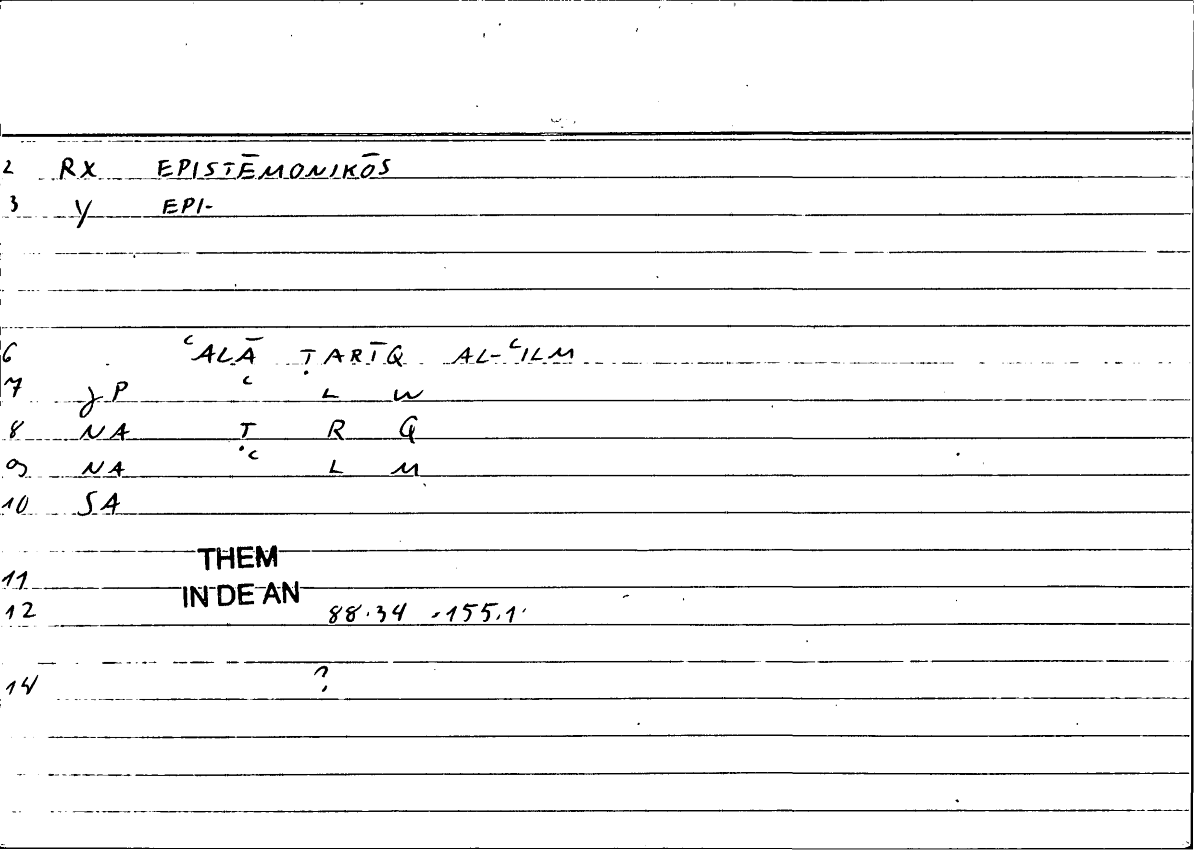 2 RX EPISTĒMONIKŌS
3 Y EPI-
6 ʿALĀ ṬARĪQ AL-ʿILM
7 JP ʿ L W
8 NA Ṭ R Q
9 NA ʿ L M
10 SA
THEM
11
IN DE AN
12 88.34 -155.1
14 ?